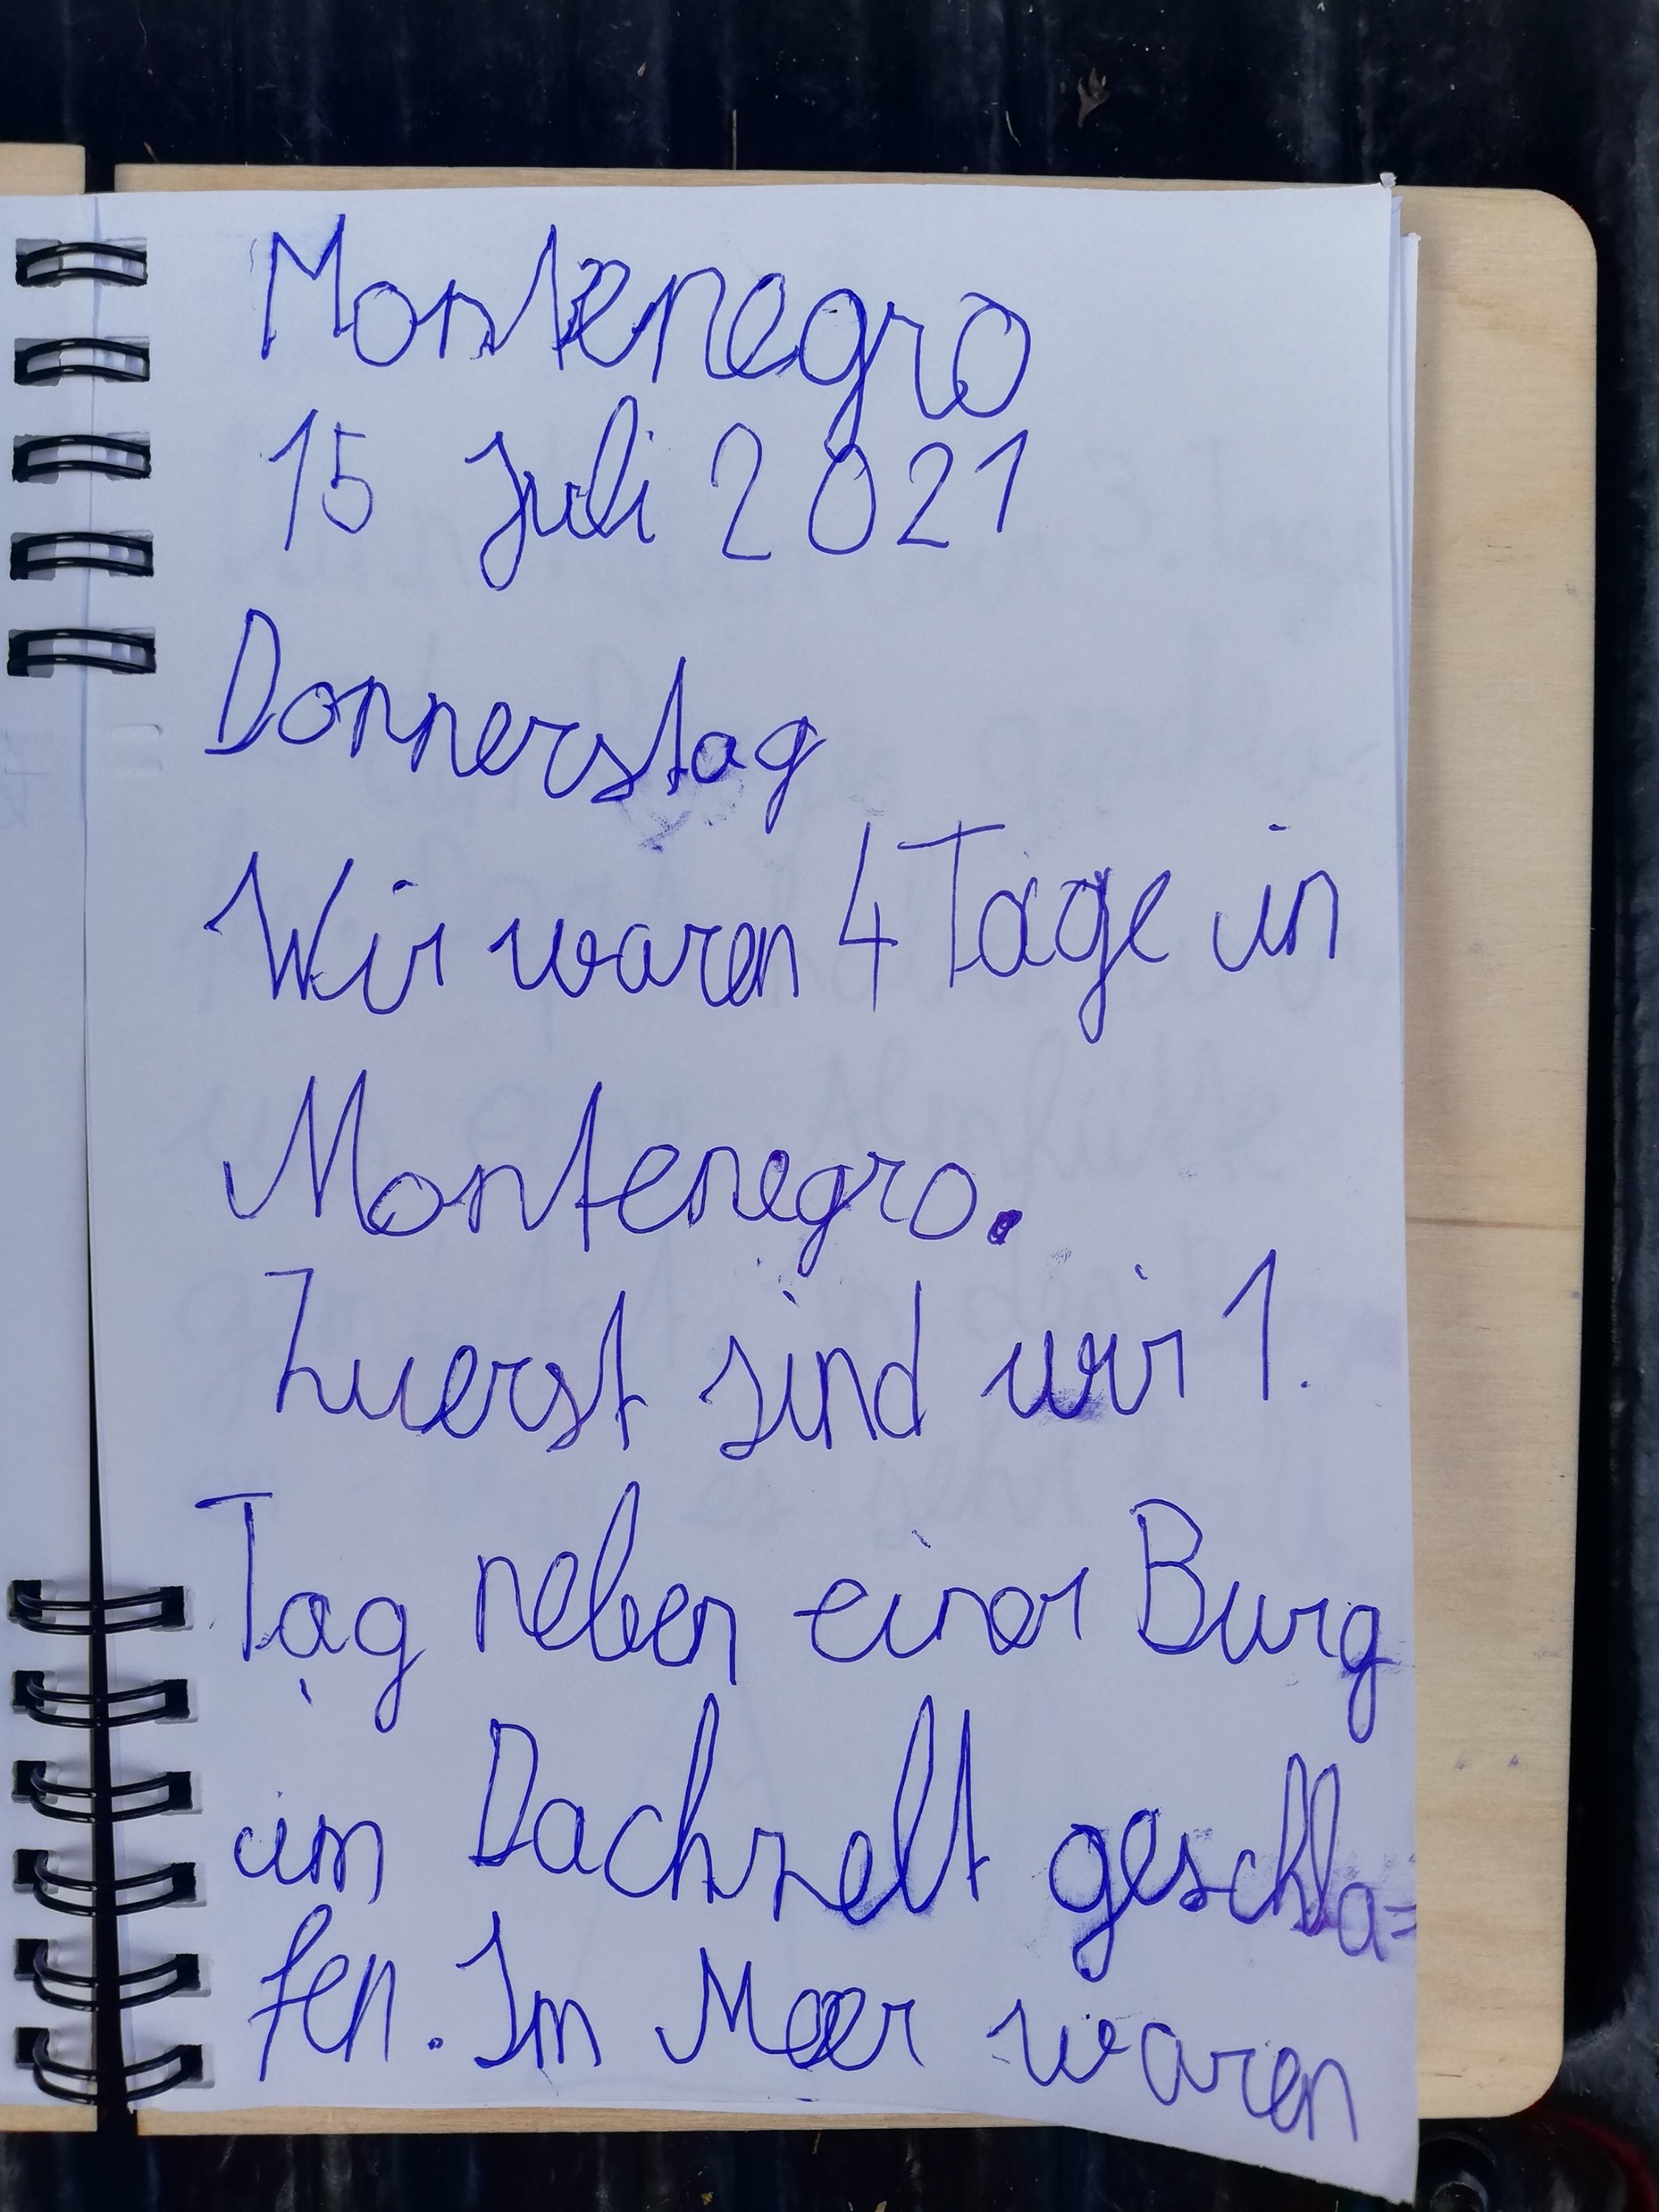 Montenegro
15 Juli 2021
Donnerstag
Wir waren 4 Tage in
Montenegro.
Zuerst sind wir 1.
Tag neben einer Burg
im Dachzelt geschla=
fen. Im Meer waren